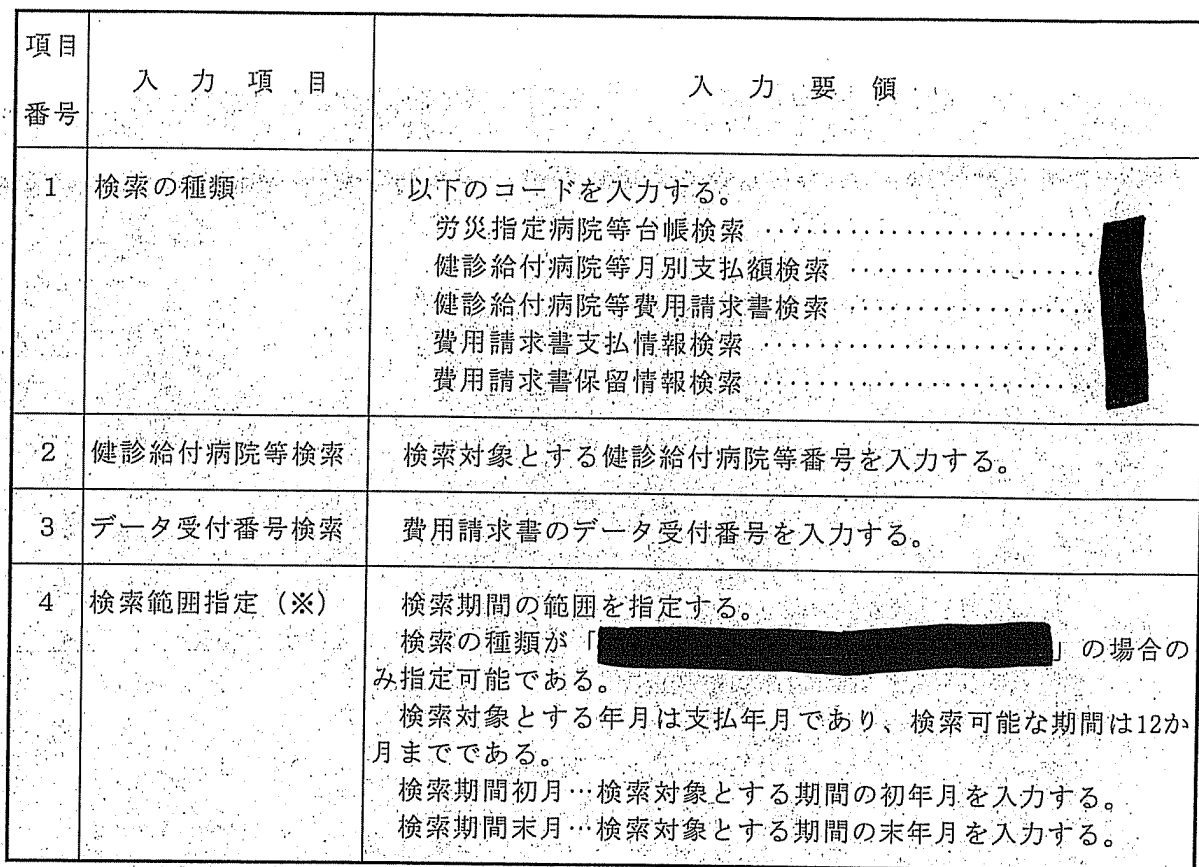 項目番号 入力項目 入力要領
1 検索の種類 以下のコードを入力する。
労災指定病院等台帳検索 ························
健診給付病院等月別支払額検索 ··················
健診給付病院等費用請求書検索 ··················
費用請求書支払情報検索 ························
費用請求書保留情報検索 ························
2 健診給付病院等検索 検索対象とする健診給付病院等番号を入力する。
3 データ受付番号検索 費用請求書のデータ受付番号を入力する。
4 検索範囲指定(※) 検索期間の範囲を指定する。
検索の種類が「 」の場合の
み指定可能である。
検索対象とする年月は支払年月であり、検索可能な期間は12か
月までである。
検索期間初月…検索対象とする期間の初年月を入力する。
検索期間末月…検索対象とする期間の末年月を入力する。